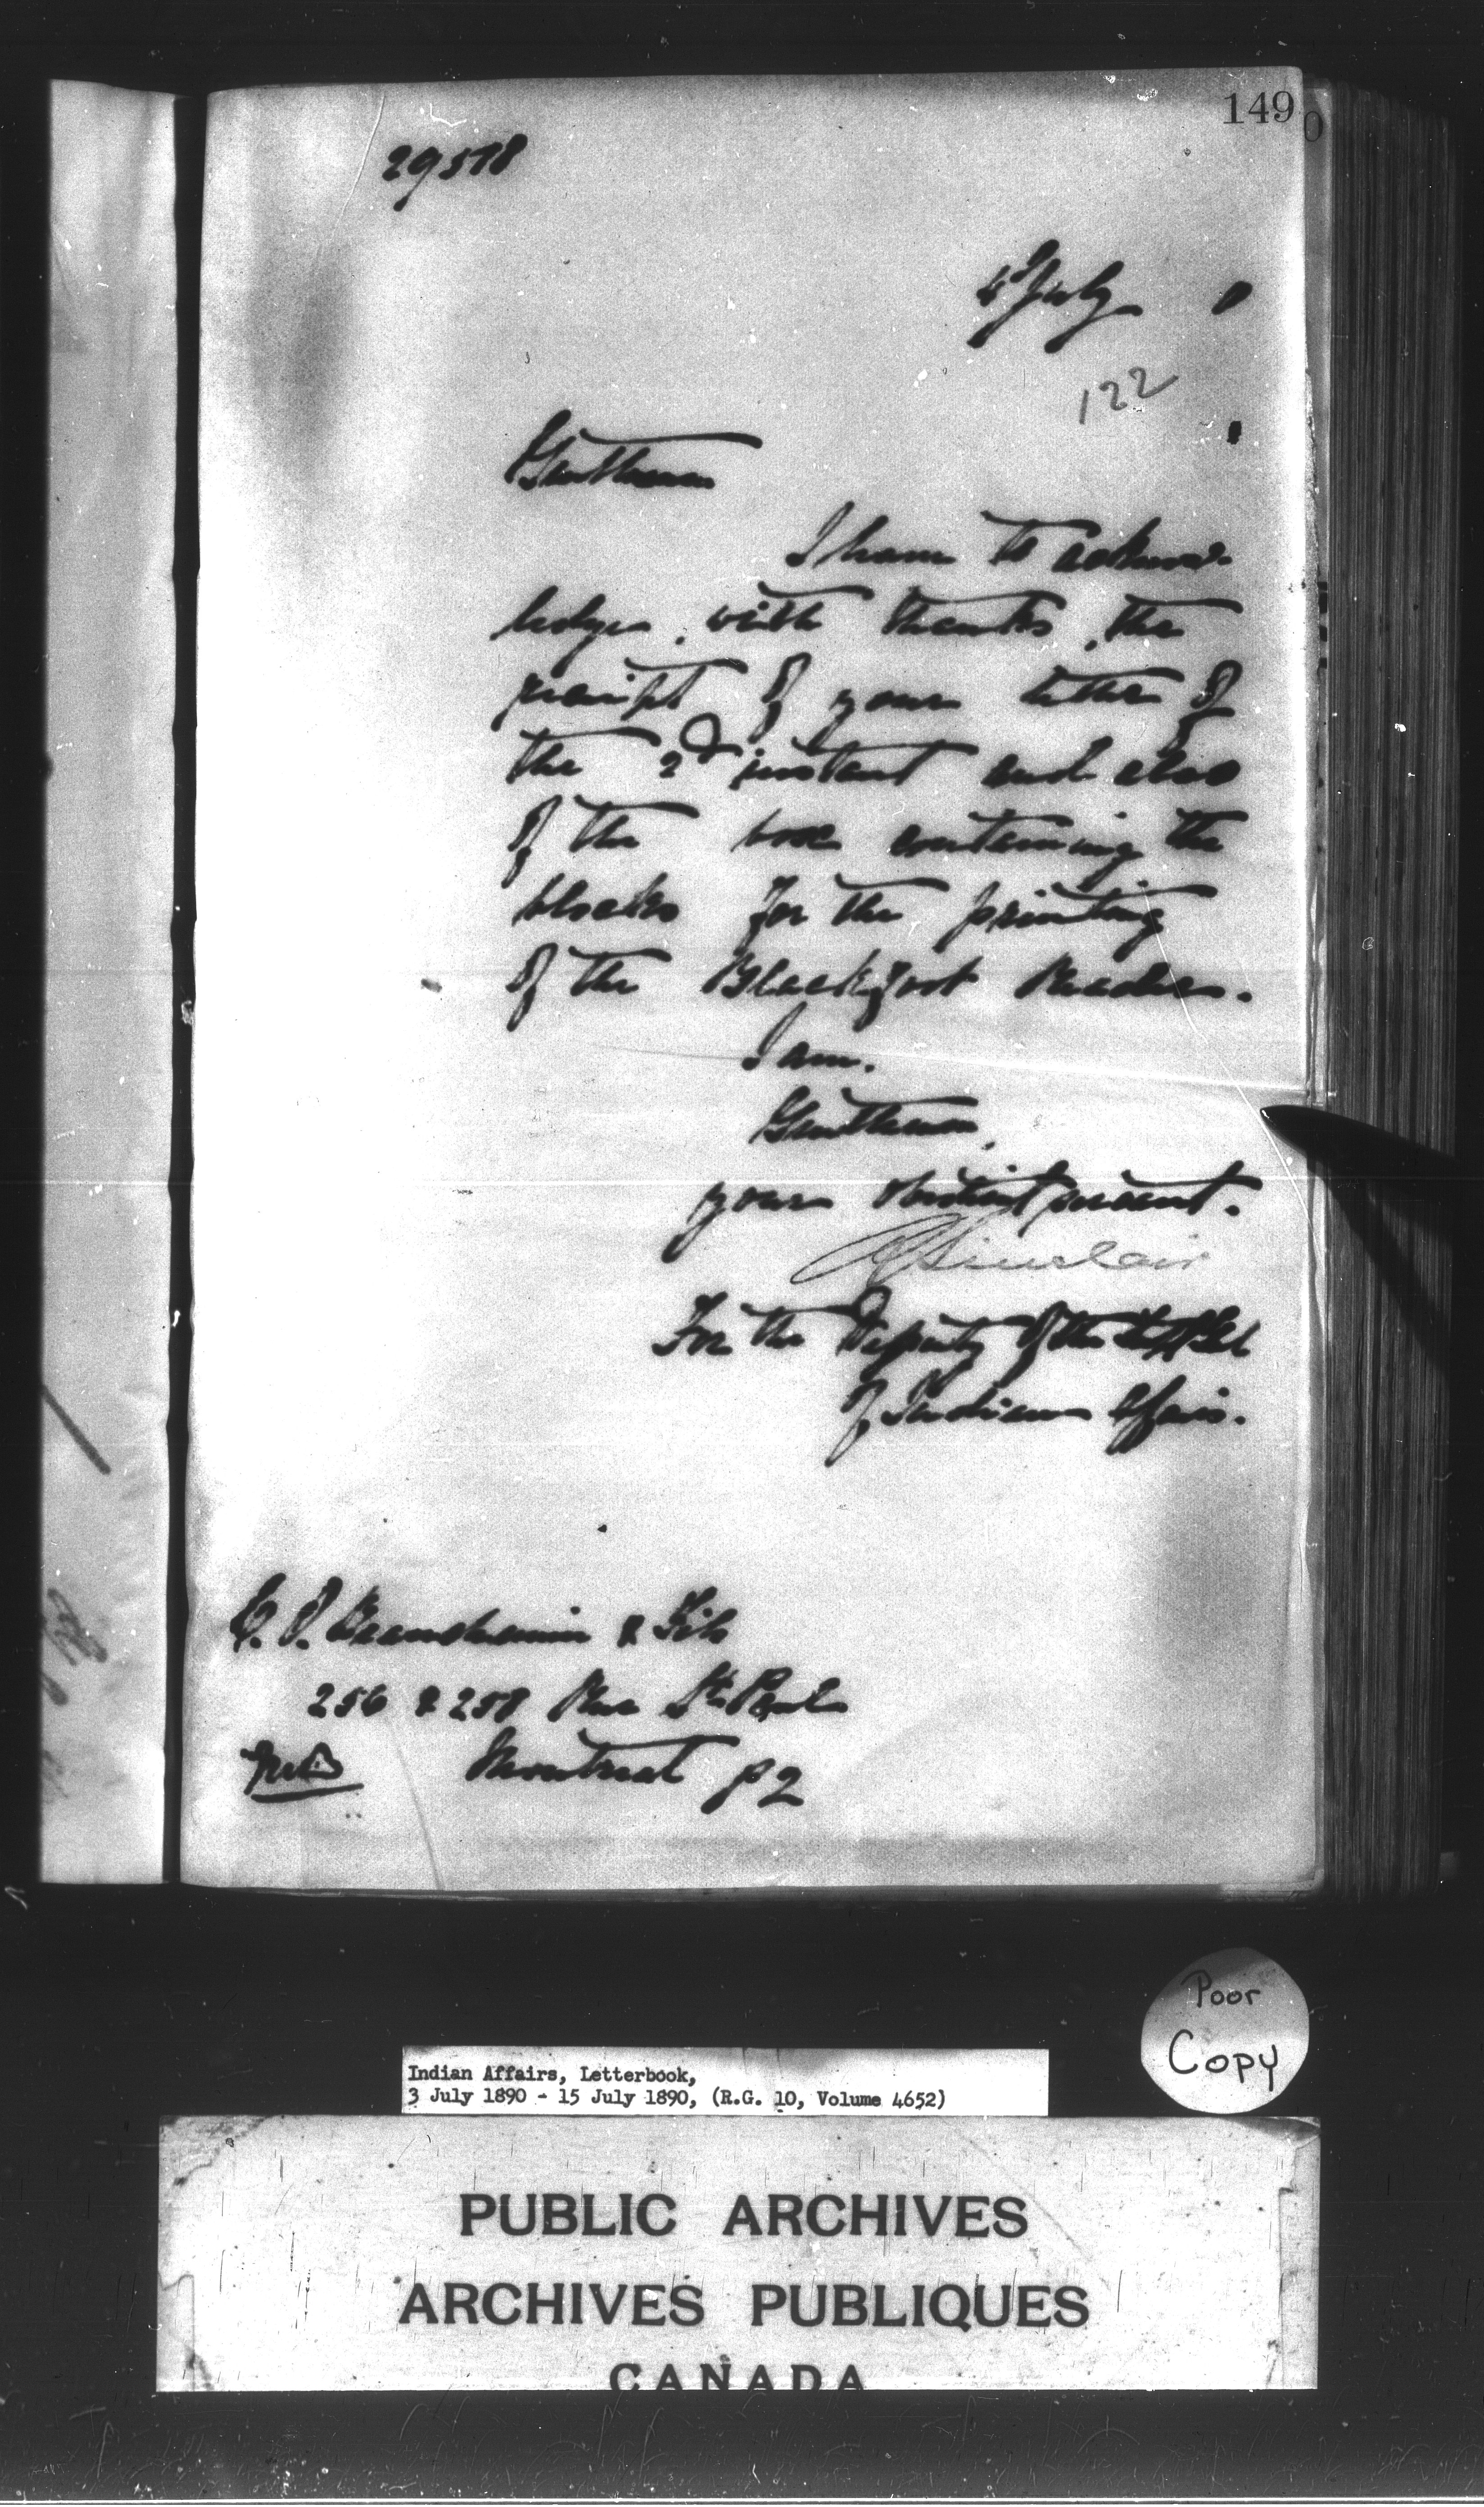 149
0
29578
4th July 0
122
Gentlemen
I have to acknow-
ledge, with thanks, the
receipt of your letter of
the 2d instant and also
of the box containing the
blocks for the printing
of the Blackfoot Reader.
I am,
Gentlemen,
your obedient servant.
Sinclair
For the Deputy of the
of Indian Affairs.
C. O. Beauchemin & Fils
256 & 258 Rue St. Paul
Montreal P2
Poor
Copy
Indian Affairs, Letterbook,
3 July 1890 - 15 July 1890, (R.G. 10, Volume 4652)
PUBLIC ARCHIVES
ARCHIVES PUBLIQUES
CANADA